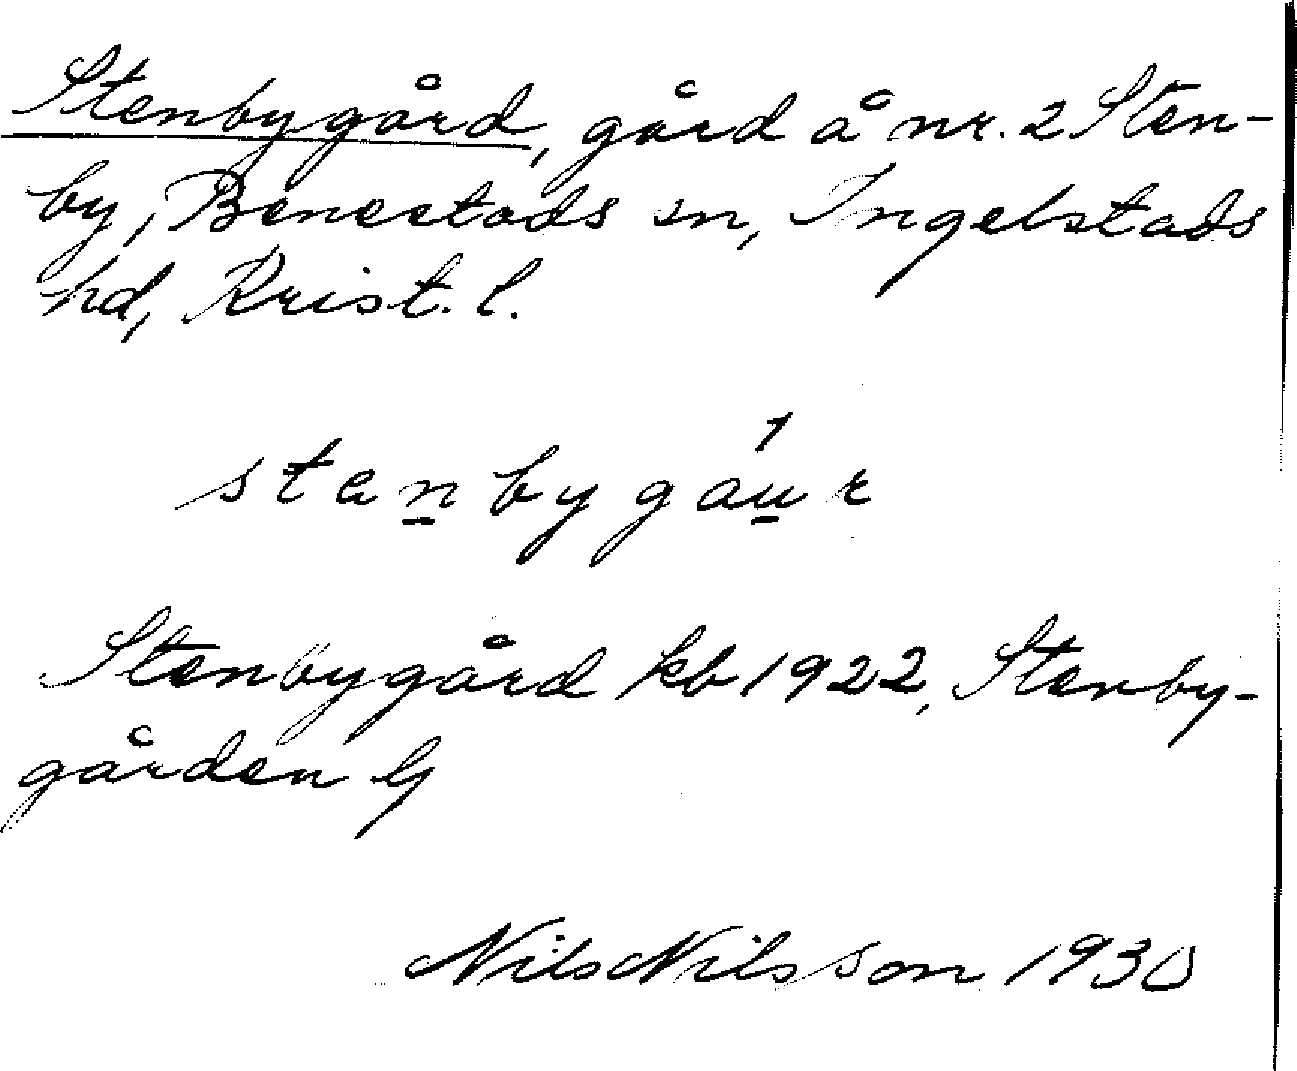 Stenbygård, gård å nr. 2 Sten-
by, Benestads sn, Ingelstads
hd, Krist. l.
Stenbygård kb 1922, Stenby-
gården G
Nils Nilsson 1930